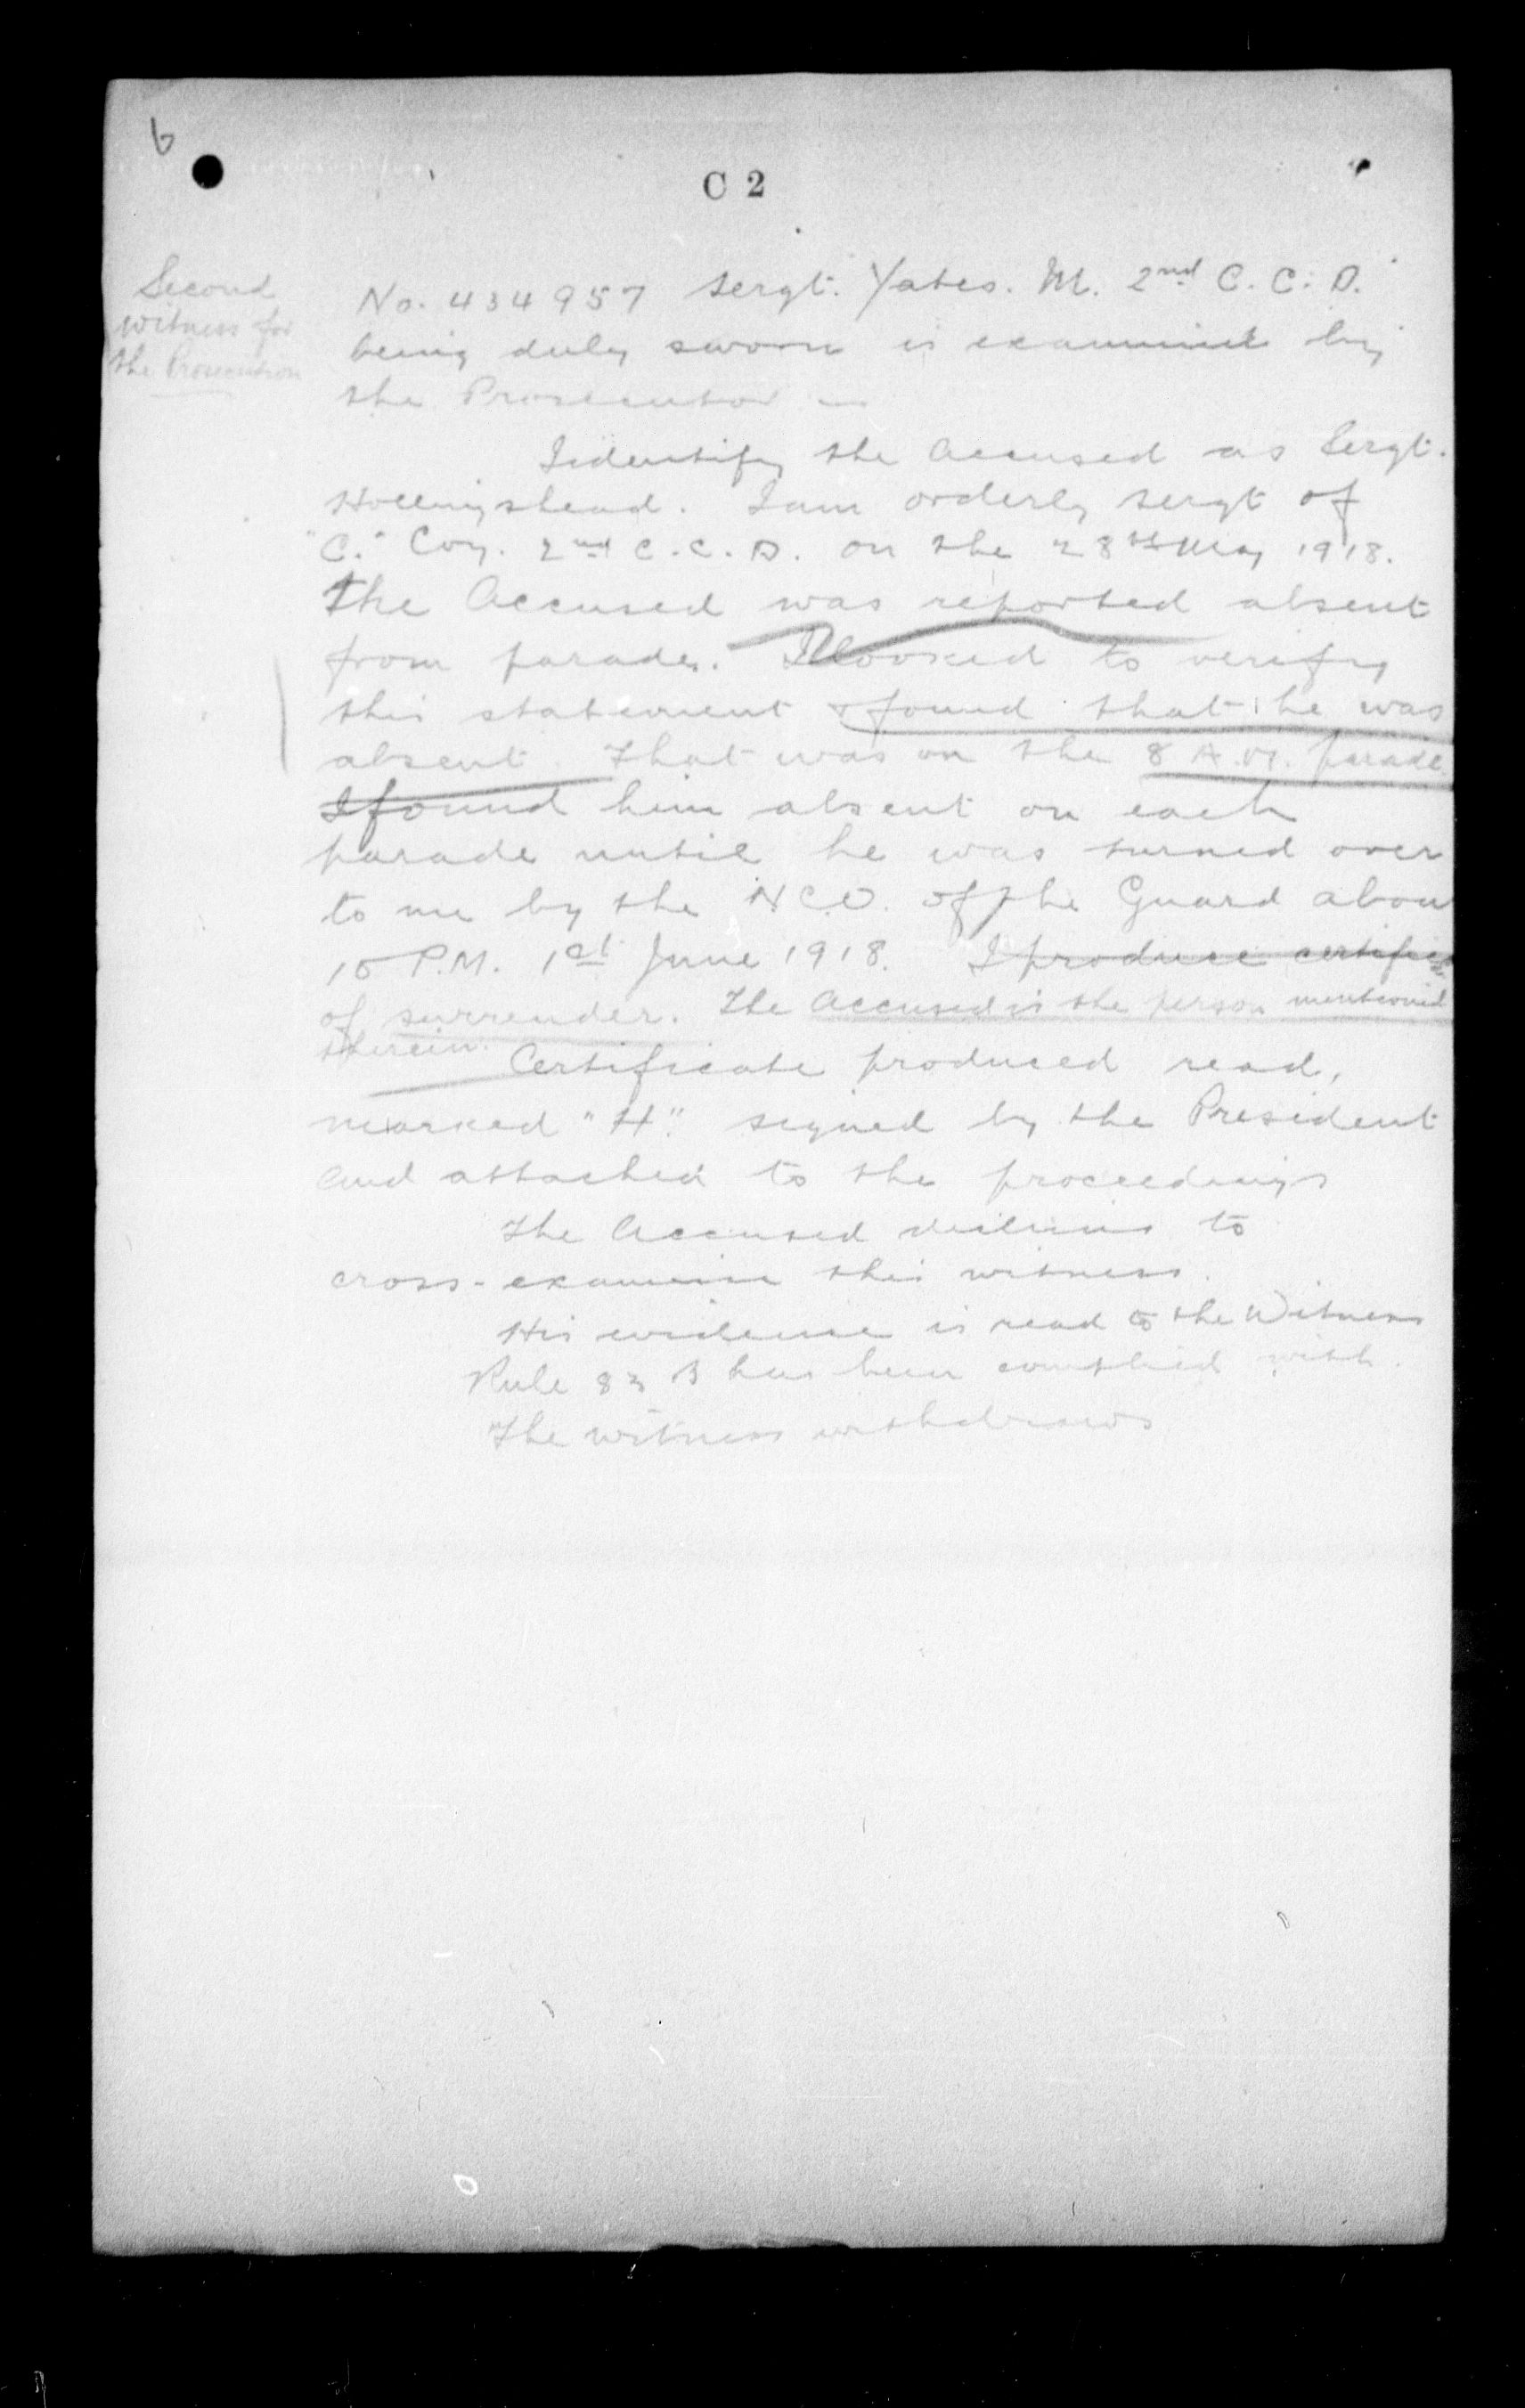 6
C 2
Second
witness for
the Prosecution
No. 434957 Sergt. Yates. M. 2nd C. C. D.
being duly sworn is examined by
the Prosecutor —
I identify the accused as Sergt.
Hollingshead. I am orderly sergt of
"C." Coy. 2nd C.C.D. On the 28th May 1918.
The Accused was reported absent
from parade. I looked to verify
this statement & found that he was
absent. That was on the 8 A.M. parade.
I found him absent on each
parade until he was turned over
to me by the N.C.O. of the Guard about
10 P.M. 1st June 1918. I produce certificate
of surrender. The accused is the person mentioned
therein.
Certificate produced read,
marked "H". signed by the President
and attached to the proceedings
The Accused declines to
cross-examine this witness.
His evidence is read to the Witness
Rule 83 B has been complied with.
The witness withdraws